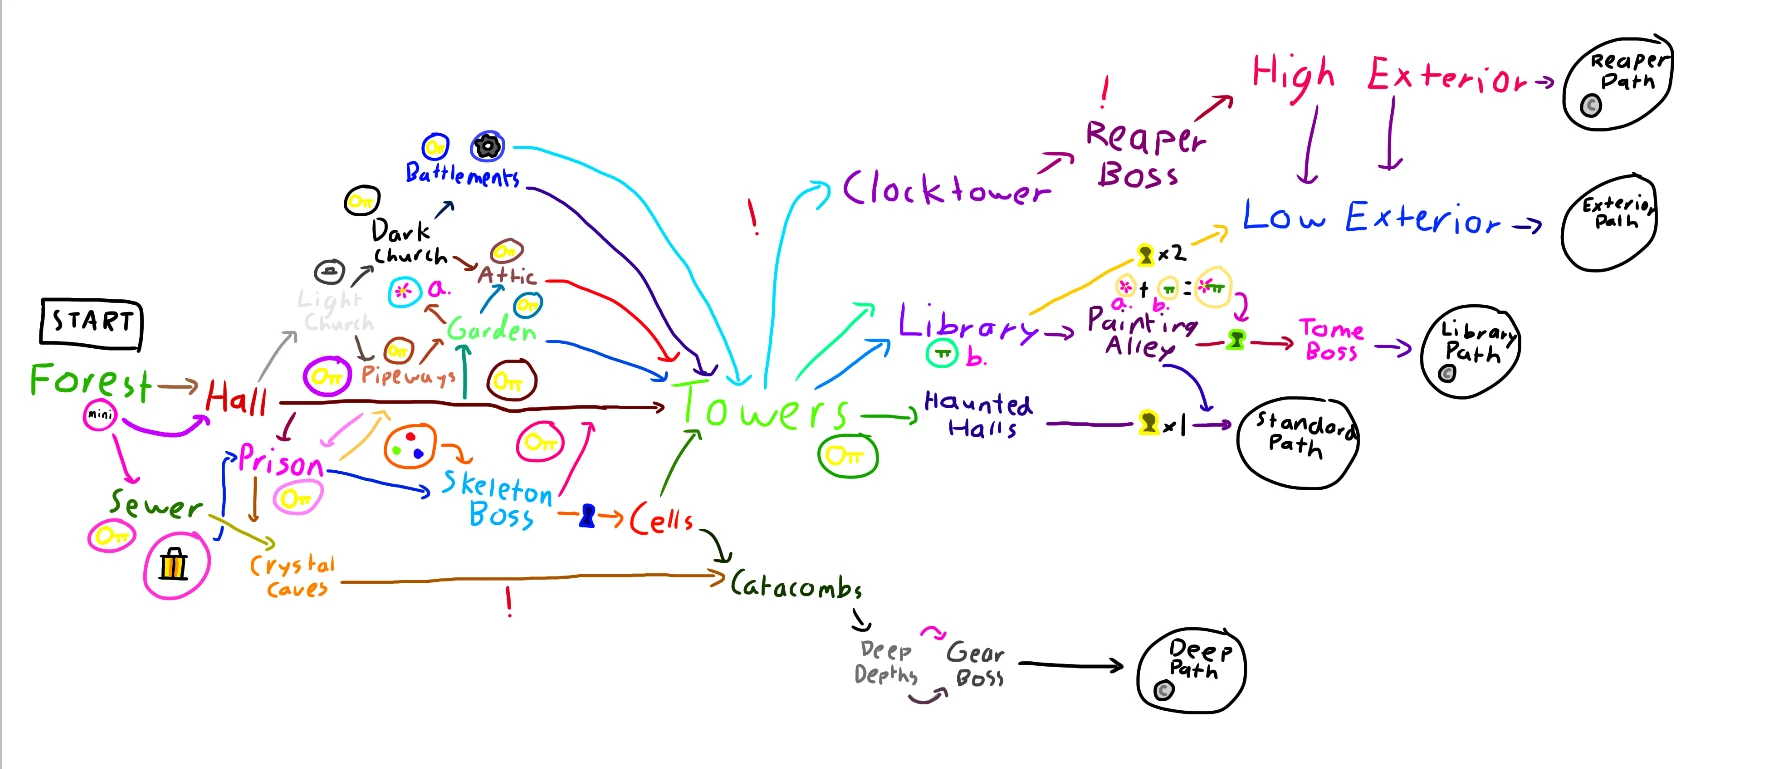 START
Forest
mini
Hall
Sewer
Prison
Crystal
Caves
Light
Church
Dark
Church
Battlements
Attic
a.
Garden
Pipeways
Skeleton
Boss
Cells
Towers
!
!
Catacombs
Deep
Depths
Gear
Boss
Deep
Path
C
Clocktower
!
Reaper
Boss
High Exterior
Reaper
Path
C
Low Exterior
Exterior
Path
Library
b.
x2
+ =
a. b.
Painting
Alley
Tome
Boss
Library
Path
C
Haunted
Halls
x1
Standard
Path